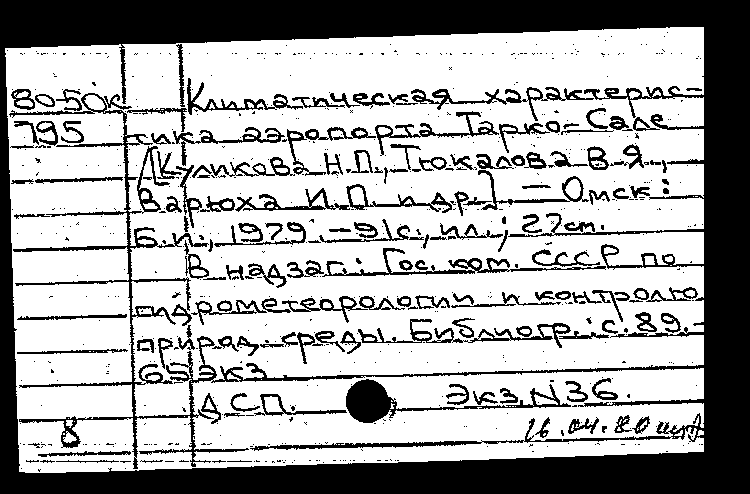 80-50к Климатическая характерис-
795 тика аэропорта Тарко-Сале
/[Куликова Н.П., Тюкалова В.Я.,
Варюха И.П. и др.]. — Омск:
Б.и., 1979. – 91с., ил.; 27см.
В надзаг.: Гос. ком. СССР по
гидрометеорологии и контролю
природ. среды. Библиогр.: с. 89. –
65 экз.
ДСП. Экз. N36.
8 16.04.80